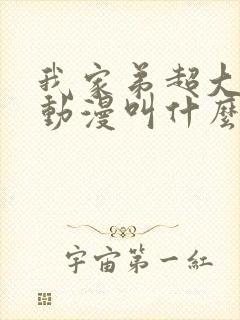 我家弟超大
動漫叫什麼
宇宙第一紅